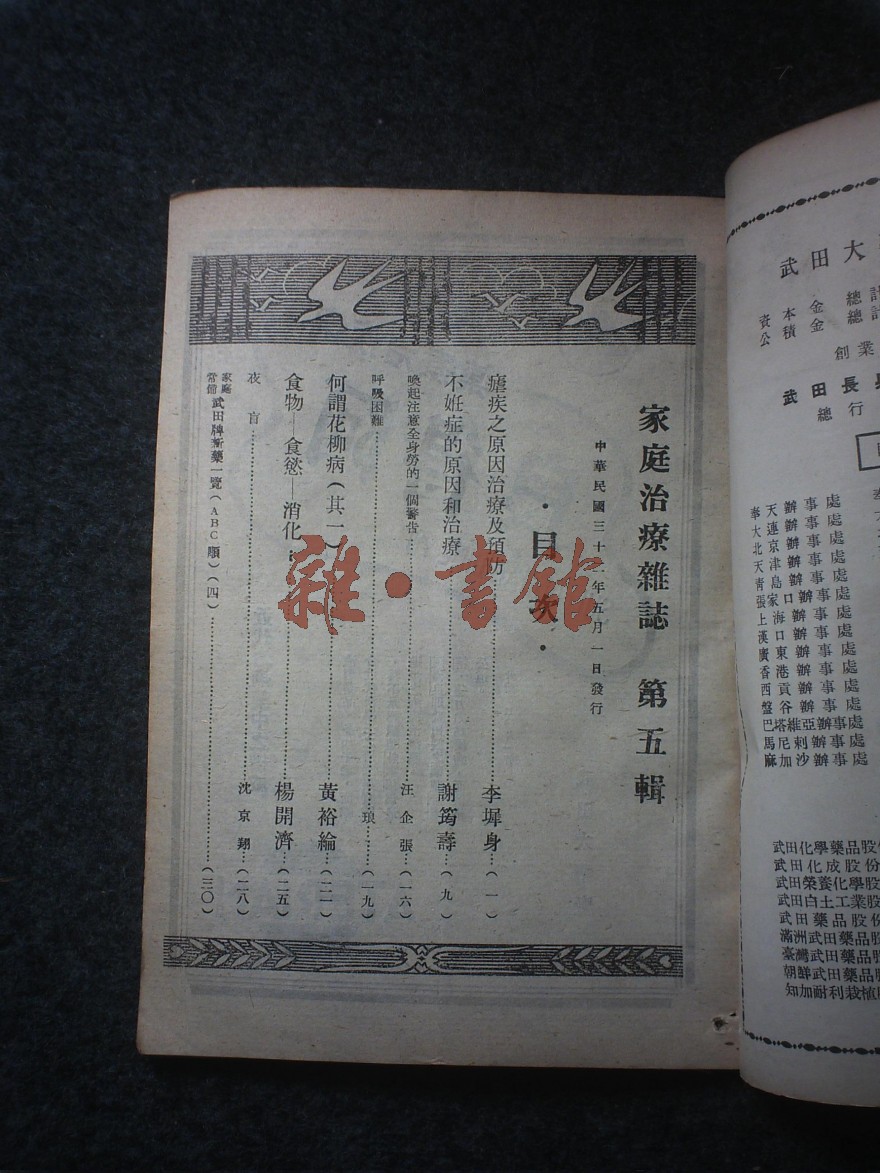 家庭治療雜誌 第五輯
中華民國三十二年五月一日發行
·目次·
瘧疾之原因治療及預防……李墀身…(一)
不妊症的原因和治療……謝筠壽…(九)
喚起注意全身勞的一個警告……汪企張…(一六)
呼吸困難……琅…(一九)
何謂花柳病(其一)……黃裕綸…(二一)
食物—食慾—消化……楊開濟…(二五)
夜盲……沈京翔…(二八)
家庭常備 武田牌新藥一覽(ABC順)(四)……(三〇)
雜·書館
武田大
資本金總計
公積金總計
創業
武田長
總行
奉天辦事處
大連辦事處
北京辦事處
天津辦事處
青島辦事處
張家口辦事處
上海辦事處
漢口辦事處
廣東辦事處
香港辦事處
西貢辦事處
盤谷辦事處
巴塔維亞辦事處
馬尼剌辦事處
麻加沙辦事處
武田化學藥品股份
武田化成股份
武田榮養化學股
武田白土工業股
武田藥品股份
滿洲武田藥品股
臺灣武田藥品股
朝鮮武田藥品股
知加耐利栽植